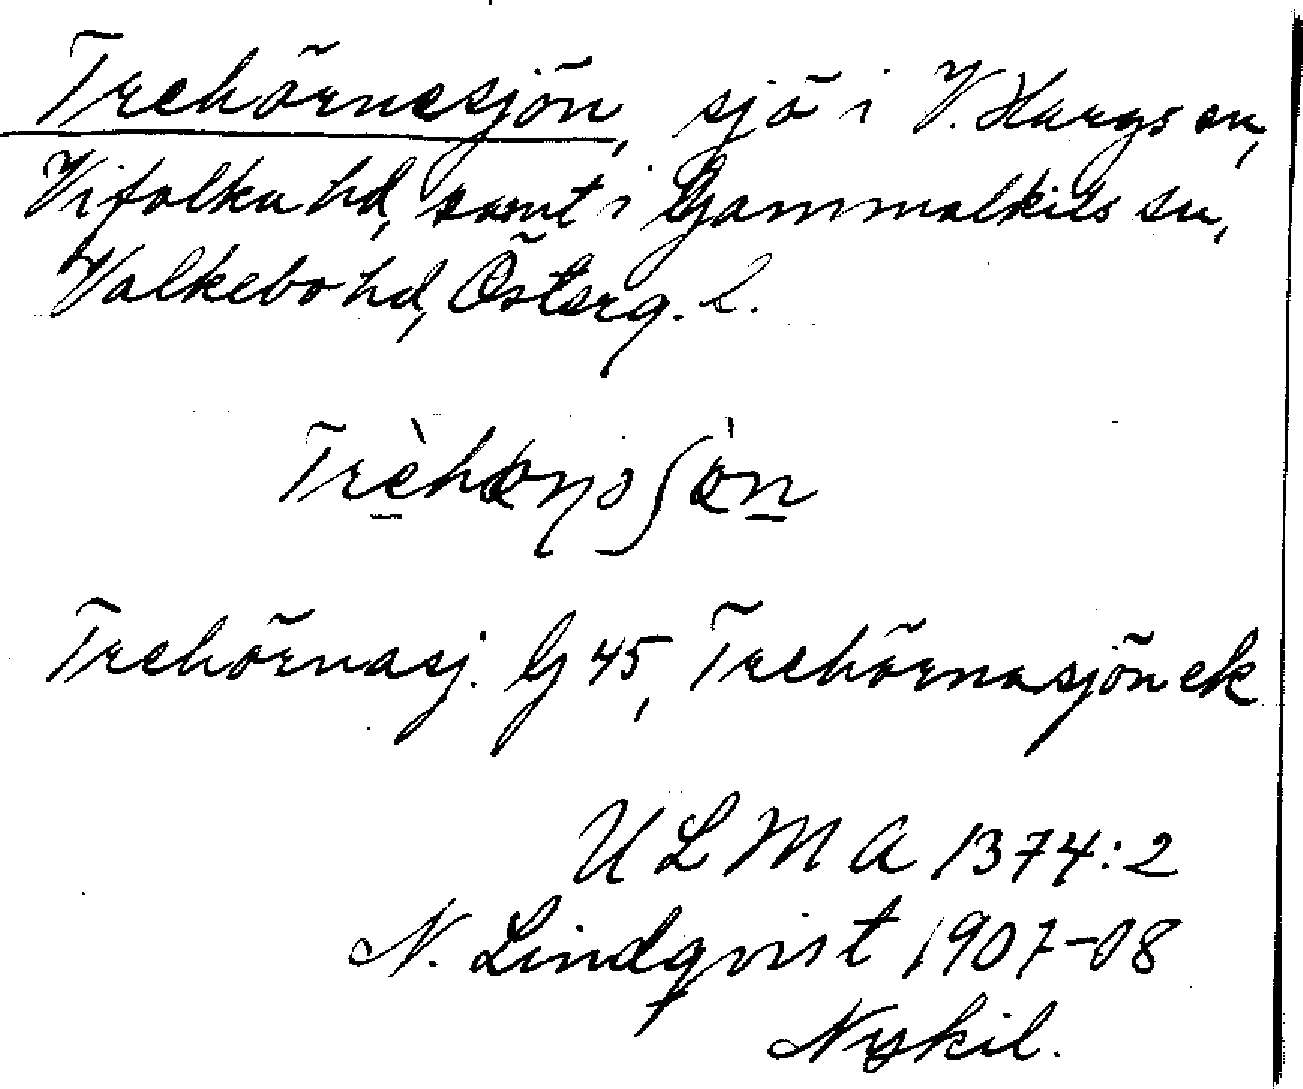 Trehörnesjön, sjö i V. Hargs sn,
Vifolka hd, samt i Gammalkils sn,
Valkebo hd, Österg. l.
Trehörnasj. G 45, Trehörnasjön ek
ULMA 1374:2
N. Lindqvist 1907-08
Nykil.